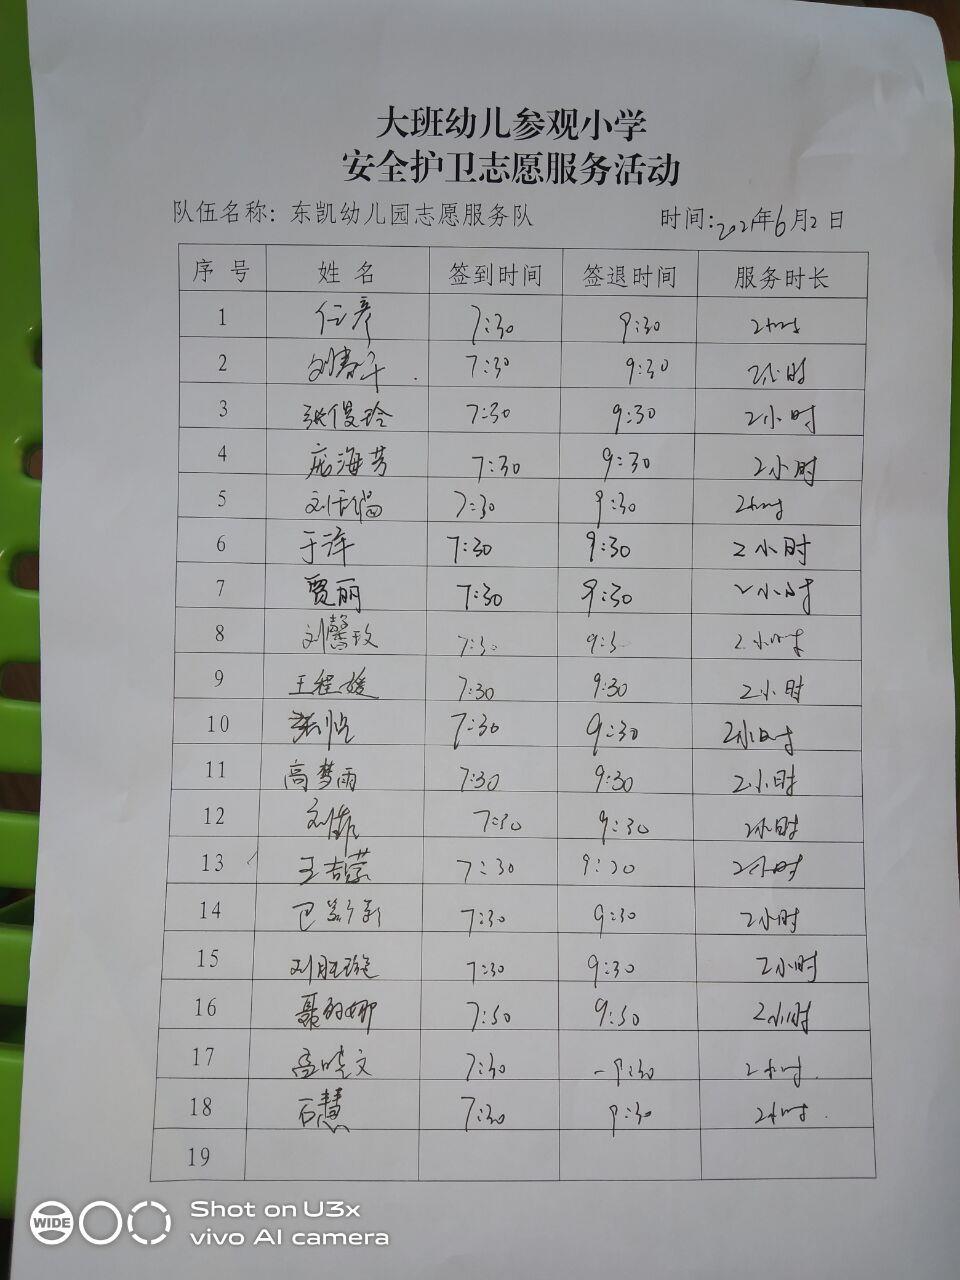 大班幼儿参观小学
安全护卫志愿服务活动
队伍名称: 东凯幼儿园志愿服务队 时间: 2021年6月2日
序号 姓名 签到时间 签退时间 服务时长
1 任彦 7:30 9:30
2 刘春子 7:30 9:30 2小时
3 张俊玲 7:30 9:30 2小时
4 庞海芳 7:30 9:30 2小时
5 7:30 9:30
6 于洋 7:30 9:30 2小时
7 贾丽 7:30 9:30 2小时
8 刘馨玫 7:30 9:3 2小时
9 王程媛 7:30 9:30 2小时
10 7:30 9:30 2小时
11 高梦雨 7:30 9:30 2小时
12 7:30 9:30 2小时
13 7:30 9:30 2小时
14 7:30 9:30 2小时
15 刘胜璇 7:30 9:30 2小时
16 7:30 9:30 2小时
17 孟晓文 7:30 9:30 2小时
18 石慧 7:30 9:30
19
WIDE
Shot on U3x
vivo AI camera